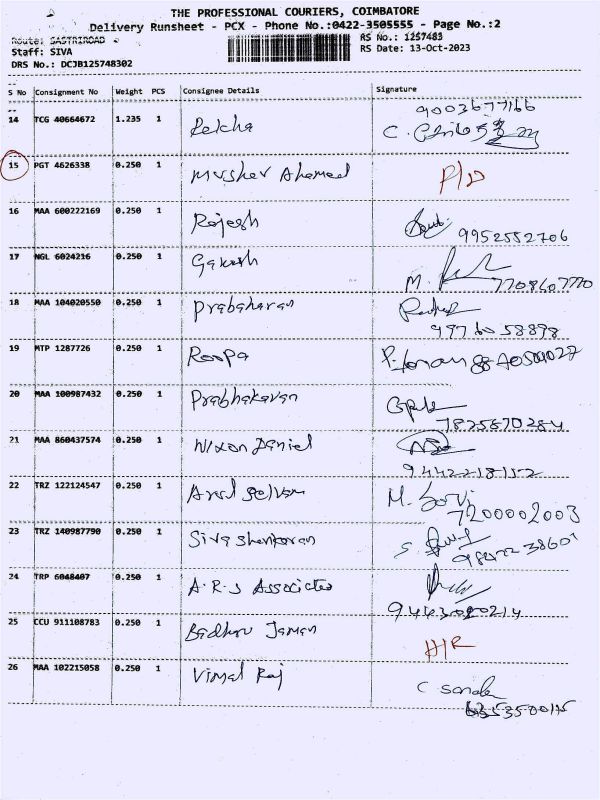 THE PROFESSIONAL COURIERS, COIMBATORE
Delivery Runsheet - PCX - Phone No.:0422-3505555 - Page No.:2
Route: SASTRIROAD
RS No.: 1257483
Staff: SIVA
RS Date: 13-Oct-2023
DRS No.: DCJB125748302
S No Consignment No Weight PCS Consignee Details Signature
14 TCG 40664672 1.235 1 Rekha 9003677166
C.
15 PGT 4626338 0.250 1 Musher Ahamed
16 MAA 600222169 0.250 1 Rajesh
9952552706
17 NGL 6024216 0.250 1 Gakesh
M. 7708607770
18 MAA 104020550 0.250 1 Prabaharan
9976058898
19 MTP 1287726 0.250 1 Roopa
20 MAA 100987432 0.250 1 Prabhakaran
7825870284
21 MAA 860437574 0.250 1 Nixon Daniel
9442218152
22 TRZ 122124547 0.250 1 Arul Selvam M.
7200002003
23 TRZ 140987790 0.250 1 Siva Shankaran S.
24 TRP 6048407 0.250 1 A.R.S Associates
9443080214
25 CCU 911108783 0.250 1 Badhru Jaman
H/R
26 MAA 102215058 0.250 1 Vimal Raj
C